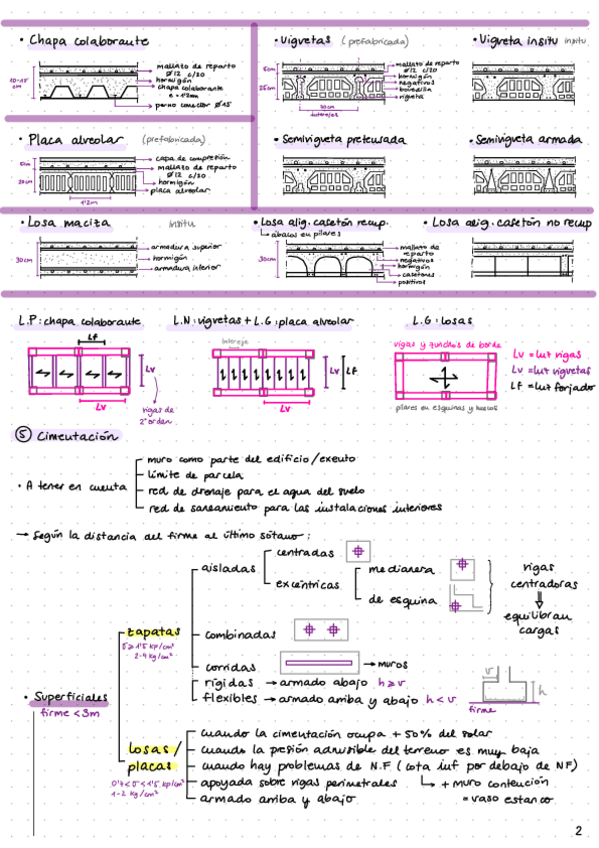 • Chapa colaborante
mallato de reparto
Ø12 c/20
hormigón
chapa colaborante
e = 1'2mm
perno conector Ø15
10-15
cm
• Viguetas (prefabricada)
mallato de reparto
Ø12 c/20
hormigón
negativos
bovedilla
vigueta
5cm
25cm
70cm
intereje
• Vigueta insitu insitu
• Placa alveolar (prefabricada)
capa de compresión
mallato de reparto
Ø12 c/20
hormigón
placa alveolar
5cm
20cm
1'2m
• Semivigueta pretensada
• Semivigueta armada
• Losa maciza insitu
armadura superior
hormigón
armadura inferior
30cm
• Losa alig. casetón recup.
↳ abacos en pilares
mallato de
reparto
negativos
hormigón
casetones
positivos
30cm
• Losa alig. casetón no recup
L.P: chapa colaborante
Lf
Lv
Lv
vigas de
2º orden
L.N: viguetas + L.G: placa alveolar
intereje
Lv
Lf
Lv
L.G: losas
vigas y zunchos de borde
pilares en esquinas y huecos
Lv = luz vigas
Lv = luz viguetas
Lf = luz forjado
⑤ Cimentación
• A tener en cuenta
muro como parte del edificio/exento
límite de parcela
red de drenaje para el agua del suelo
red de saneamiento para las instalaciones interiores
→ Según la distancia del firme al último sótano:
• Superficiales
firme < 3m
zapatas
σ ≥ 1'5 kp/cm²
2-4 kg/cm²
aisladas
centradas
excéntricas
medianera
de esquina
vigas
centradoras
⇓
equilibran
cargas
combinadas
corridas
→ muros
rígidas → armado abajo h ≥ v
flexibles → armado arriba y abajo h < v
v
h
firme
losas/
placas
0'4 < σ < 1'5 kp/cm²
1-2 kg/cm²
cuando la cimentación ocupa + 50% del solar
cuando la presión admisible del terreno es muy baja
cuando hay problemas de N.F (cota inf por debajo de NF)
apoyada sobre vigas perimetrales ↳ + muro contención
armado arriba y abajo = vaso estanco
2